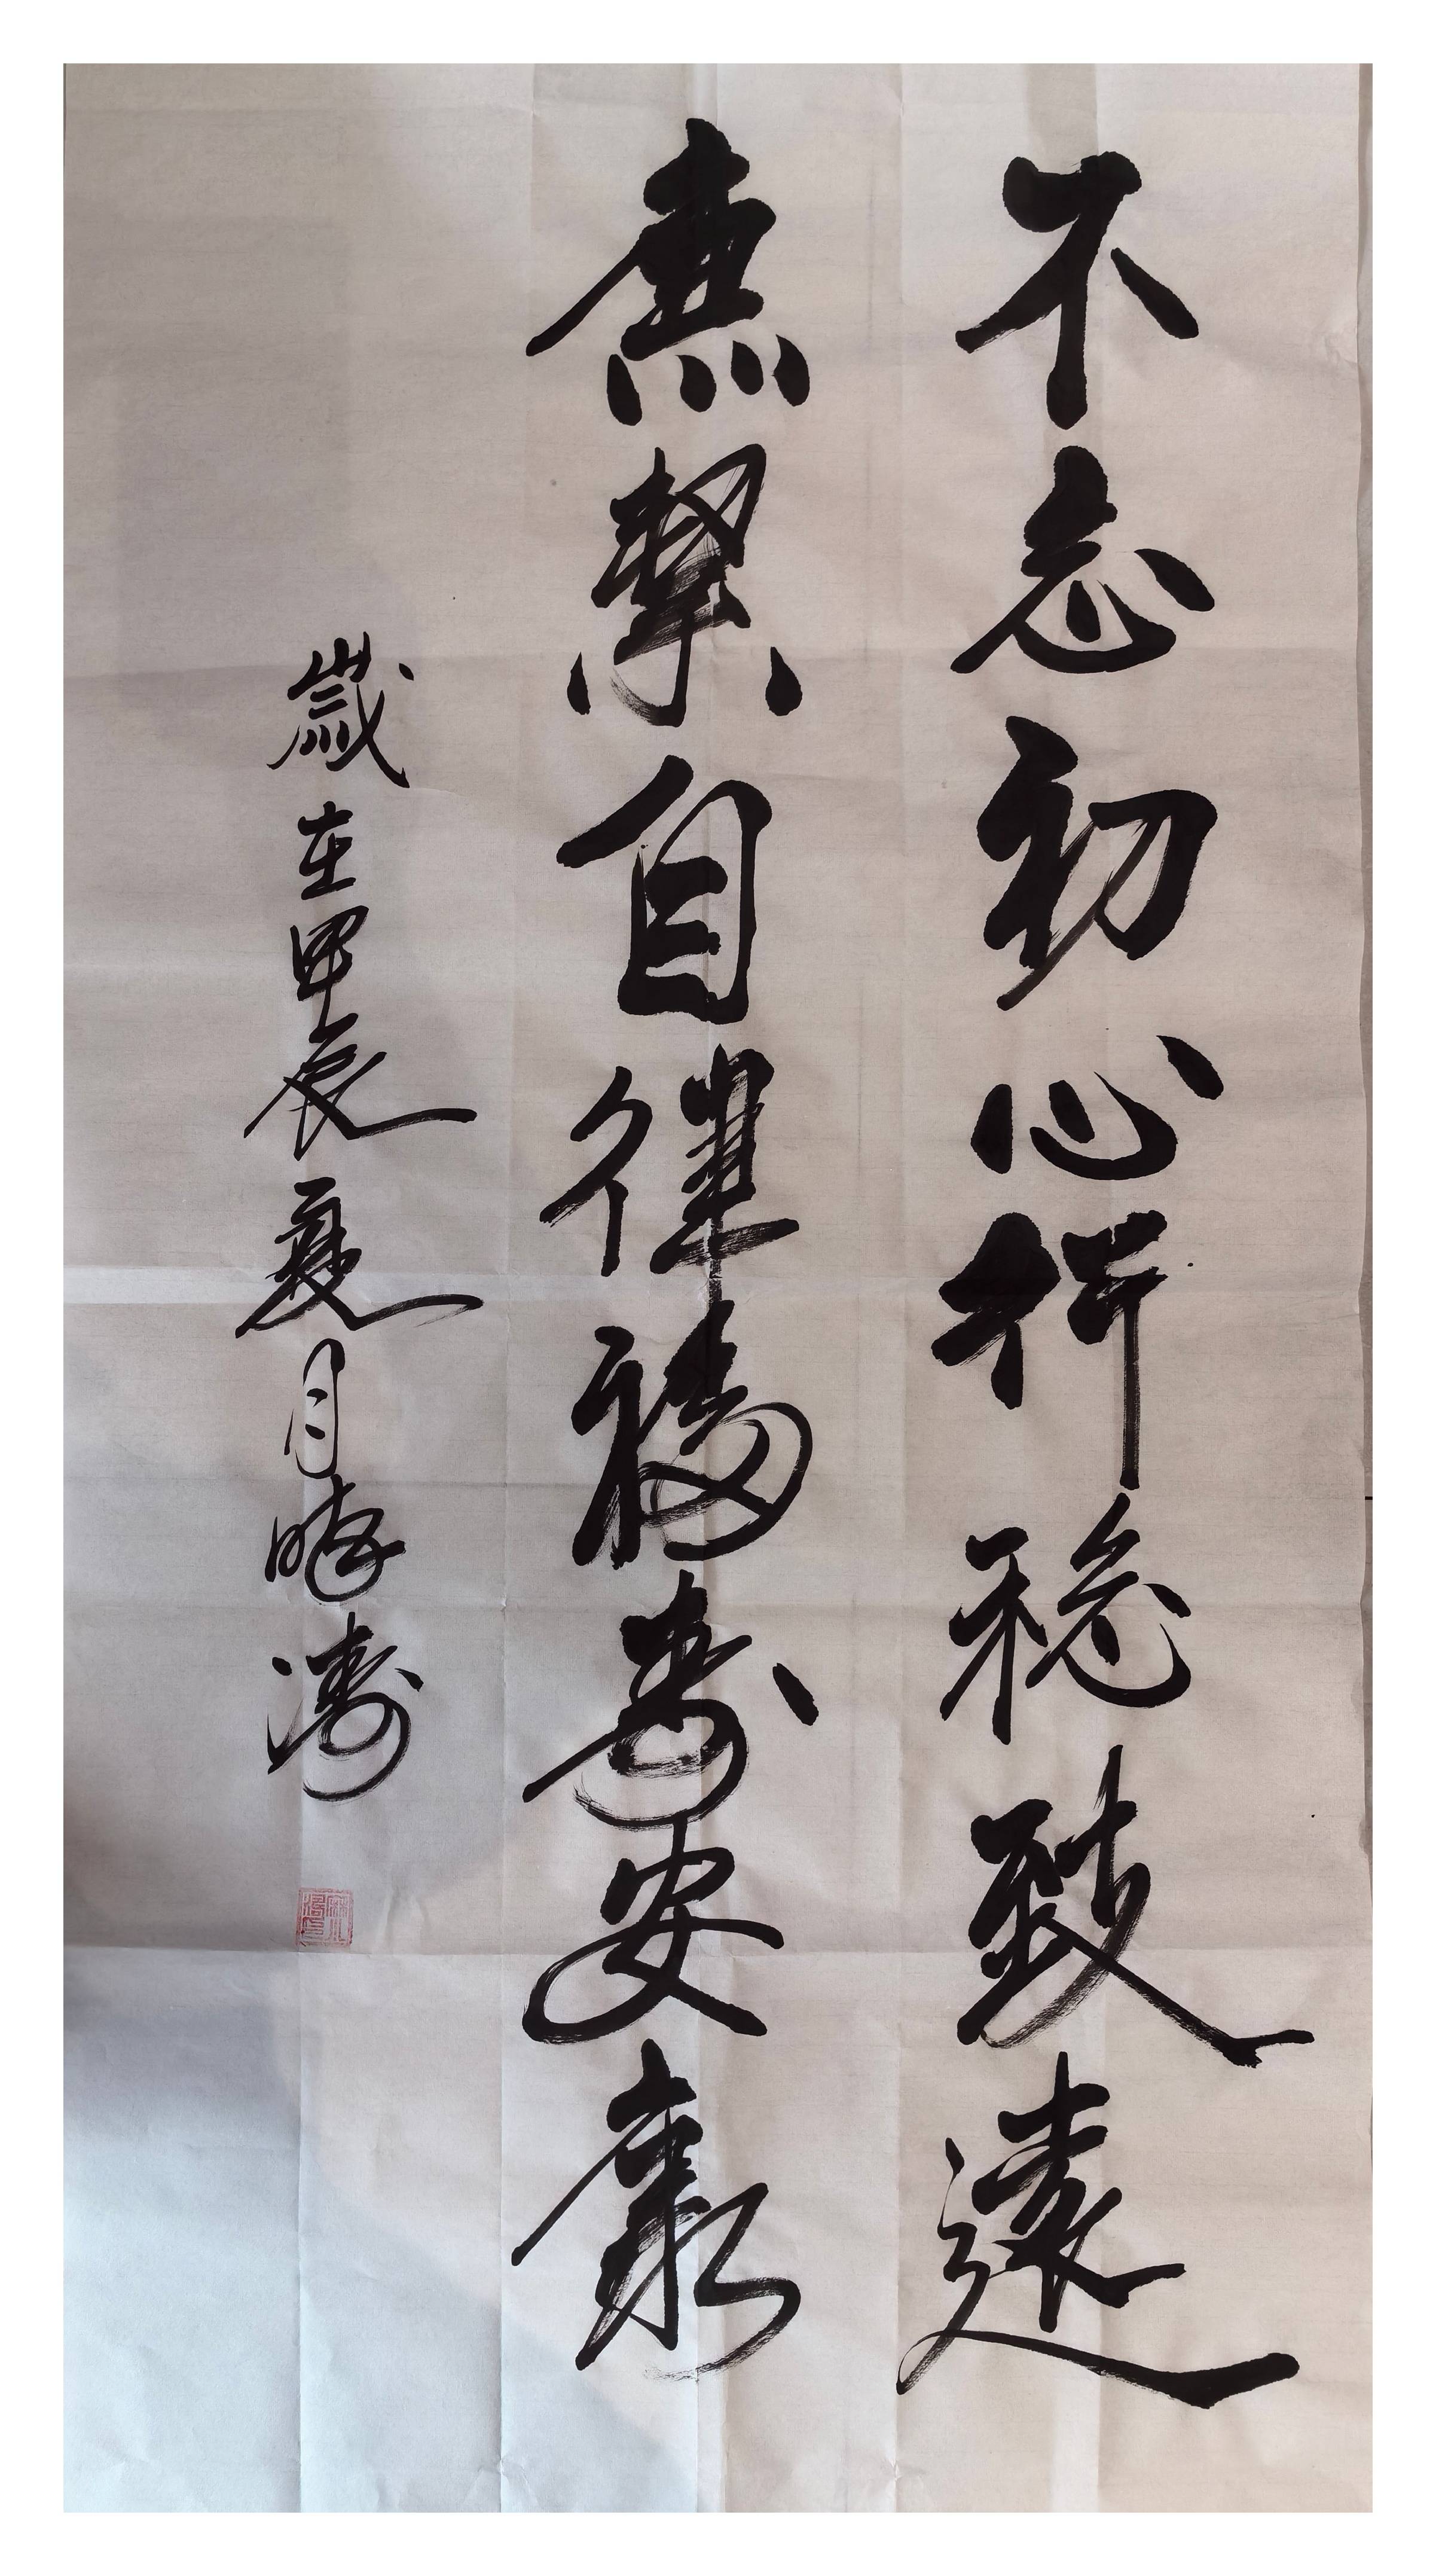 不忘初心行稳致遠
廉潔自律福寿安康
歲在甲辰夏月曉濤